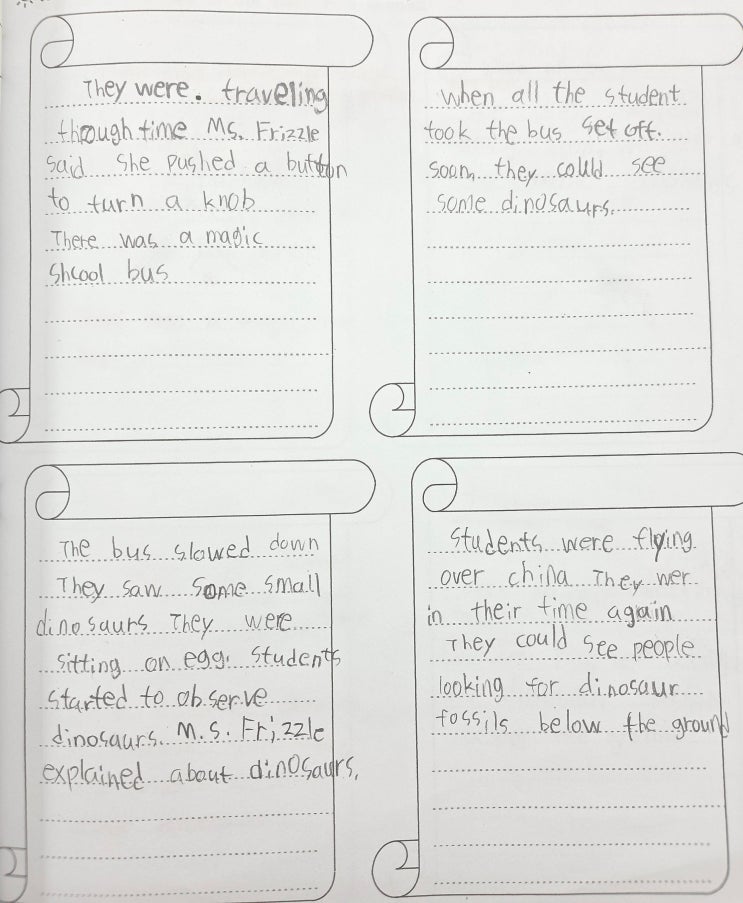 They were. traveling
through time Ms. Frizzle
said she pushed a button
to turn a knob
There was a magic
Shcool bus
When all the student
took the bus set off.
soon, they could see
some dinosaurs.
The bus slowed down
They saw some small
dinosaurs They were
sitting on egg. students
started to observe
dinosaurs. M.s. Frizzle
explained about dinosaurs,
students were flying
over china They wer
in their time again
They could see people
looking for dinosaur
fossils below the ground